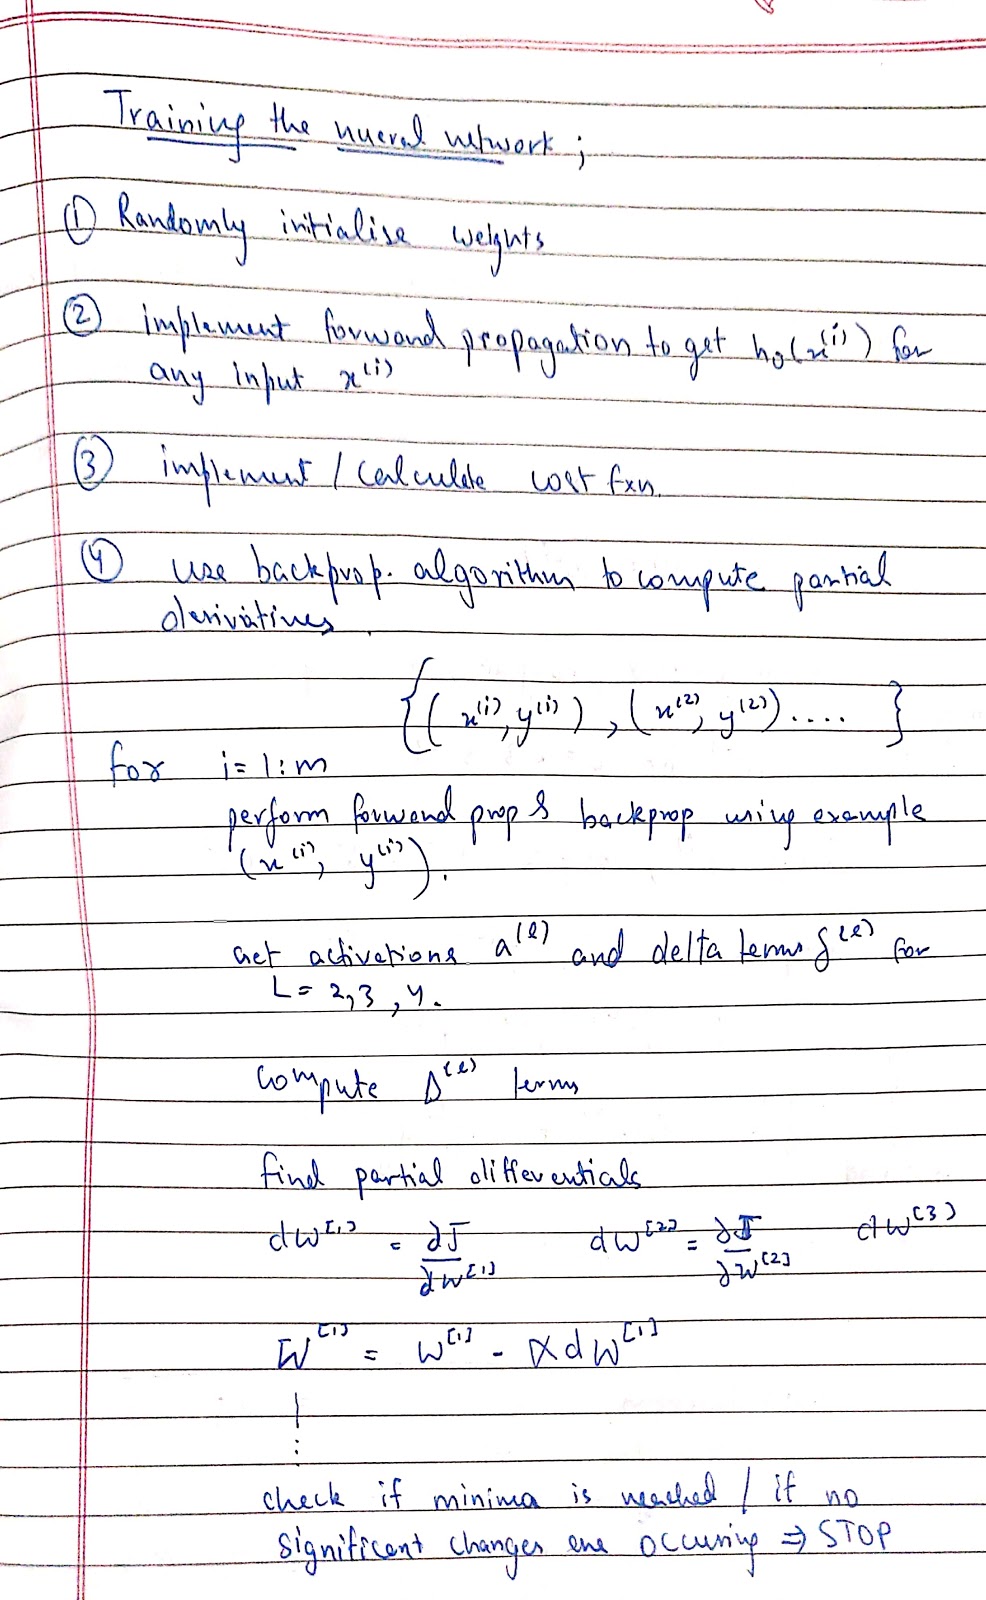 Training the nueral network ;
① Randomly initialise weights
② implement forward propagation to get hθ(x⁽ⁱ⁾) for
any input x⁽ⁱ⁾
③ implement / calculate cost fxn.
④ use backprop. algorithm to compute partial
derivatives.
{(x⁽ⁱ⁾, y⁽ⁱ⁾), (x⁽²⁾, y⁽²⁾) .... }
for i = 1:m
perform forward prop & backprop using example
(x⁽ⁱ⁾, y⁽ⁱ⁾).
Get activations a⁽ˡ⁾ and delta terms δ⁽ˡ⁾ for
L = 2,3,4.
Compute Δ⁽ˡ⁾ terms
find partial differentials
dW[1] = ∂J/∂W[1] dW[2] = ∂J/∂W[2] dW[3]
W[1] = W[1] - αdW[1]
check if minima is reached / if no
significant changes are occuring ⇒ STOP